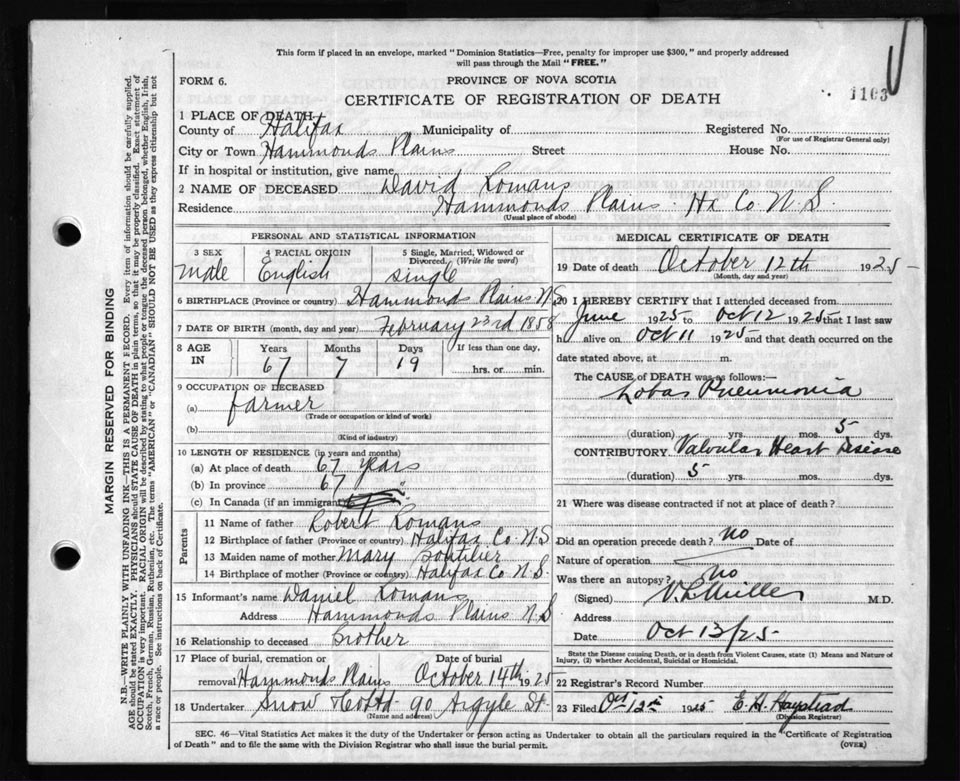 This form if placed in an envelope, marked "Dominion Statistics—Free, penalty for improper use $300," and properly addressed
will pass through the Mail "FREE."
FORM 6.
PROVINCE OF NOVA SCOTIA
1163
CERTIFICATE OF REGISTRATION OF DEATH
1 PLACE OF DEATH—
County of Halifax Municipality of Registered No.
(For use of Registrar General only)
City or Town Hammonds Plains Street House No.
If in hospital or institution, give name
2 NAME OF DECEASED David Romans
Residence Hammonds Plains Hx Co. N.S.
(Usual place of abode)
PERSONAL AND STATISTICAL INFORMATION
3 SEX 4 RACIAL ORIGIN 5 Single, Married, Widowed or
Divorced. (Write the word)
male English single
6 BIRTHPLACE (Province or country) Hammonds Plains N.S.
7 DATE OF BIRTH (month, day and year) February 23rd 1858
8 AGE IN Years Months Days If less than one day,
67 7 19 hrs. or min.
9 OCCUPATION OF DECEASED
(a) farmer
(Trade or occupation or kind of work)
(b)
(Kind of industry)
10 LENGTH OF RESIDENCE (in years and months)
(a) At place of death 67 years
(b) In province 67 "
(c) In Canada (if an immigrant)
Parents
11 Name of father Robert Romans
12 Birthplace of father (Province or country) Halifax Co. N.S.
13 Maiden name of mother Mary Boutilier
14 Birthplace of mother (Province or country) Halifax Co N.S.
15 Informant's name Daniel Romans
Address Hammonds Plains N.S
16 Relationship to deceased brother
17 Place of burial, cremation or Date of burial
removal Hammonds Plains October 14th 1925
18 Undertaker Snow & Co Ltd 90 Argyle St.
(Name and address)
MEDICAL CERTIFICATE OF DEATH
19 Date of death October 12th 1925
(Month, day and year)
20 I HEREBY CERTIFY that I attended deceased from
June 1925 to Oct 12 1925 that I last saw
h alive on Oct 11 1925 and that death occurred on the
date stated above, at m.
The CAUSE OF DEATH was as follows:—
Lobar Pneumonia
(duration) yrs. mos. 5 dys.
CONTRIBUTORY Valvular Heart Disease
(duration) 5 yrs. mos. dys.
21 Where was disease contracted if not at place of death?
Did an operation precede death? no Date of
Nature of operation
Was there an autopsy? no
(Signed) V. L. Miller M.D.
Address
Date Oct 13/25
State the Disease causing Death, or in death from Violent Causes, state (1) Means and Nature of
Injury, (2) whether Accidental, Suicidal or Homicidal.
22 Registrar's Record Number
23 Filed Oct 12th 1925 E. H. Haystead
(Division Registrar)
SEC. 46—Vital Statistics Act makes it the duty of the Undertaker or person acting as Undertaker to obtain all the particulars required in the "Certificate of Registration
of Death" and to file the same with the Division Registrar who shall issue the burial permit. (OVER)
MARGIN RESERVED FOR BINDING
N.B.—WRITE PLAINLY WITH UNFADING INK—THIS IS A PERMANENT RECORD. Every item of information should be carefully supplied.
AGE should be stated EXACTLY. PHYSICIANS should STATE CAUSE OF DEATH in plain terms, so that it may be properly classified. Exact statement of
OCCUPATION is very important. RACIAL ORIGIN will be described by stating to what people or tongue the deceased person belonged, whether English, Irish,
Scotch, French, German, Russian, Ruthenian, etc. The terms "AMERICAN" or "CANADIAN" SHOULD NOT BE USED as they express citizenship but not
a race or people. See instructions on back of Certificate.